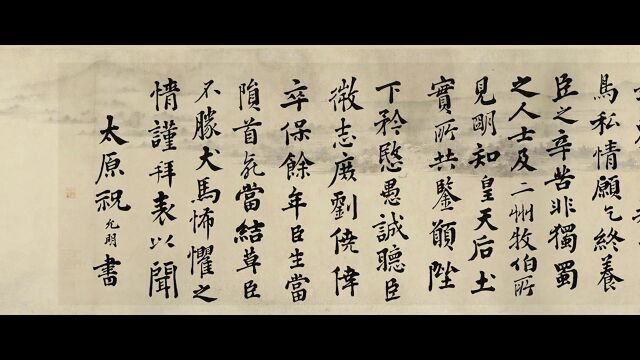 鳥私情願乞終養
臣之辛苦非獨蜀
之人士及二州牧伯所
見明知皇天后土
實所共鑒願陛
下矜愍愚誠聽臣
微志庶劉僥倖
卒保餘年臣生當
隕首死當結草臣
不勝犬馬怖懼之
情謹拜表以聞
太原祝允明書